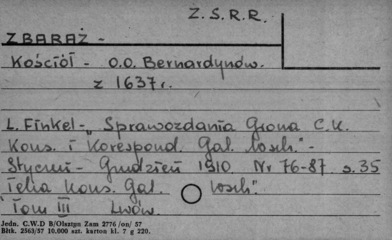 Z.S.R.R.
ZBARAŻ -
Kościół - O.O. Bernardynów.
z 1637 r.
L. Finkel - „Sprawozdania Grona C.K.
Kons. i Korespond. Gal. Wsch." -
Styczeń - Grudzień 1910. Nr 76-87 s. 35
Teka Kons. Gal. Wsch".
Tom III Lwów.
Jedn. C.W.D B/Olsztyn Zam 2776 /on/ 57
Bltk. 2563/57 10.000 szt. karton kl. 7 g 220.